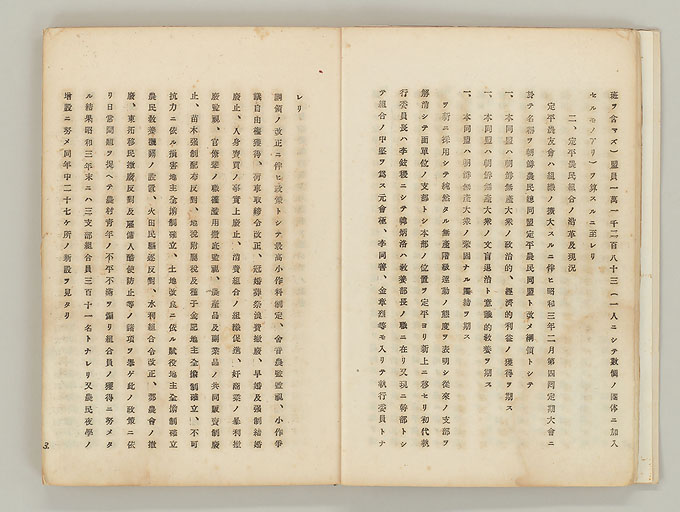 班ヲ含マズ)盟員一萬一千二百八十三(一人ニシテ數個ノ團体ニ加入
セルモノアリ)ヲ算スルニ至レリ
二、定平農民組合ノ沿革及現況
定平農友會ハ組織ノ擴大スルニ伴ヒ昭和三年二月第四囘定期大會ニ
於テ名稱ヲ朝鮮農民總同盟定平農民同盟ト改メ綱領トシテ
一、本同盟ハ朝鮮無產大衆ノ政治的、經濟的利益ノ獲得ヲ期ス
一、本同盟ハ朝鮮無產大衆ノ文盲退治ト意識的敎養ヲ期ス
一、本同盟ハ朝鮮無產大衆ノ鞏固ナル團結ヲ期ス
ヲ新ニ採用シテ純然タル無產階級運動ノ態度ヲ表明シ從來ノ支部ヲ
解消シテ面單位ノ支部トシ本部ノ位置ヲ定平ヨリ新上ニ移セリ初代執
行委員長ハ李 稷ニシテ韓炳洛ハ敎養部長ノ職ニ在リ又現ニ幹部トシ
テ組合ノ中堅ヲ爲ス元會極、李同善、金章烈等モ入リテ執行委員トナ
レリ
綱領ノ改正ニ伴ヒ政策トシテ最高小作料制定、舍音農監 視、小作爭
議自由權獲得、荷車取締令改正、冠婚葬祭浪費撤廢、早婚及强制結婚
廢止、人身賣買ノ事實上廢止、消費組合ノ組織促進、奸商業ノ暴利撤
廢 視、官僚輩ノ職權濫用撤底 視、農產品及副業品ノ共同販賣制廢
止、苗木强制配布反對、地稅附屬稅及種子金肥地主全擔制確立、不可
抗力ニ依ル損害地主全擔制確立、土地改良ニ依ル賦役地主全擔制確立
農民敎養機關ノ設置、火田民驅逐反對、水利組合令改正、郡農會ノ撤
廢、東拓移民撤廢反對及雇傭人酷使防止等ノ諸項ヲ擧ゲ此ノ政策ニ依
リ日常鬪爭ヲ提ヘテ農村靑年ノ不平不滿ヲ煽リ組合員ノ獲得ニ努メタ
ル結果昭和三年末ニハ三支部組合員三百十一名トナレリ又農民夜學ノ
增設ニ努メ同年中二十七ケ所ノ新設ヲ見タリ